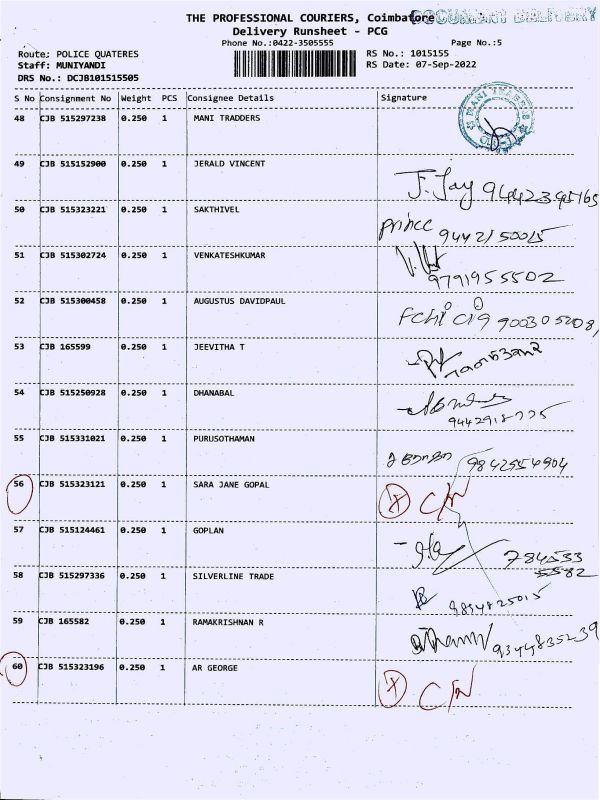 THE PROFESSIONAL COURIERS, Coimbatore
DOCUMENT DELIVERY
Delivery Runsheet - PCG
Phone No.:0422-3505555
Page No.:5
Route: POLICE QUATERES
RS No.: 1015155
Staff: MUNIYANDI
RS Date: 07-Sep-2022
DRS No.: DCJB101515505
S No Consignment No Weight PCS Consignee Details Signature
48 CJB 515297238 0.250 1 MANI TRADDERS
49 CJB 515152900 0.250 1 JERALD VINCENT
J. Jay 9442395165
50 CJB 515323221 0.250 1 SAKTHIVEL
prince 9442150015
51 CJB 515302724 0.250 1 VENKATESHKUMAR
9791955502
52 CJB 515300458 0.250 1 AUGUSTUS DAVIDPAUL
53 CJB 165599 0.250 1 JEEVITHA T
54 CJB 515250928 0.250 1 DHANABAL
55 CJB 515331021 0.250 1 PURUSOTHAMAN
9842554904
56 CJB 515323121 0.250 1 SARA JANE GOPAL
X C/N
57 CJB 515124461 0.250 1 GOPLAN
784533
5582
58 CJB 515297336 0.250 1 SILVERLINE TRADE
9894825015
59 CJB 165582 0.250 1 RAMAKRISHNAN R
9344835239
60 CJB 515323196 0.250 1 AR GEORGE
X C/N